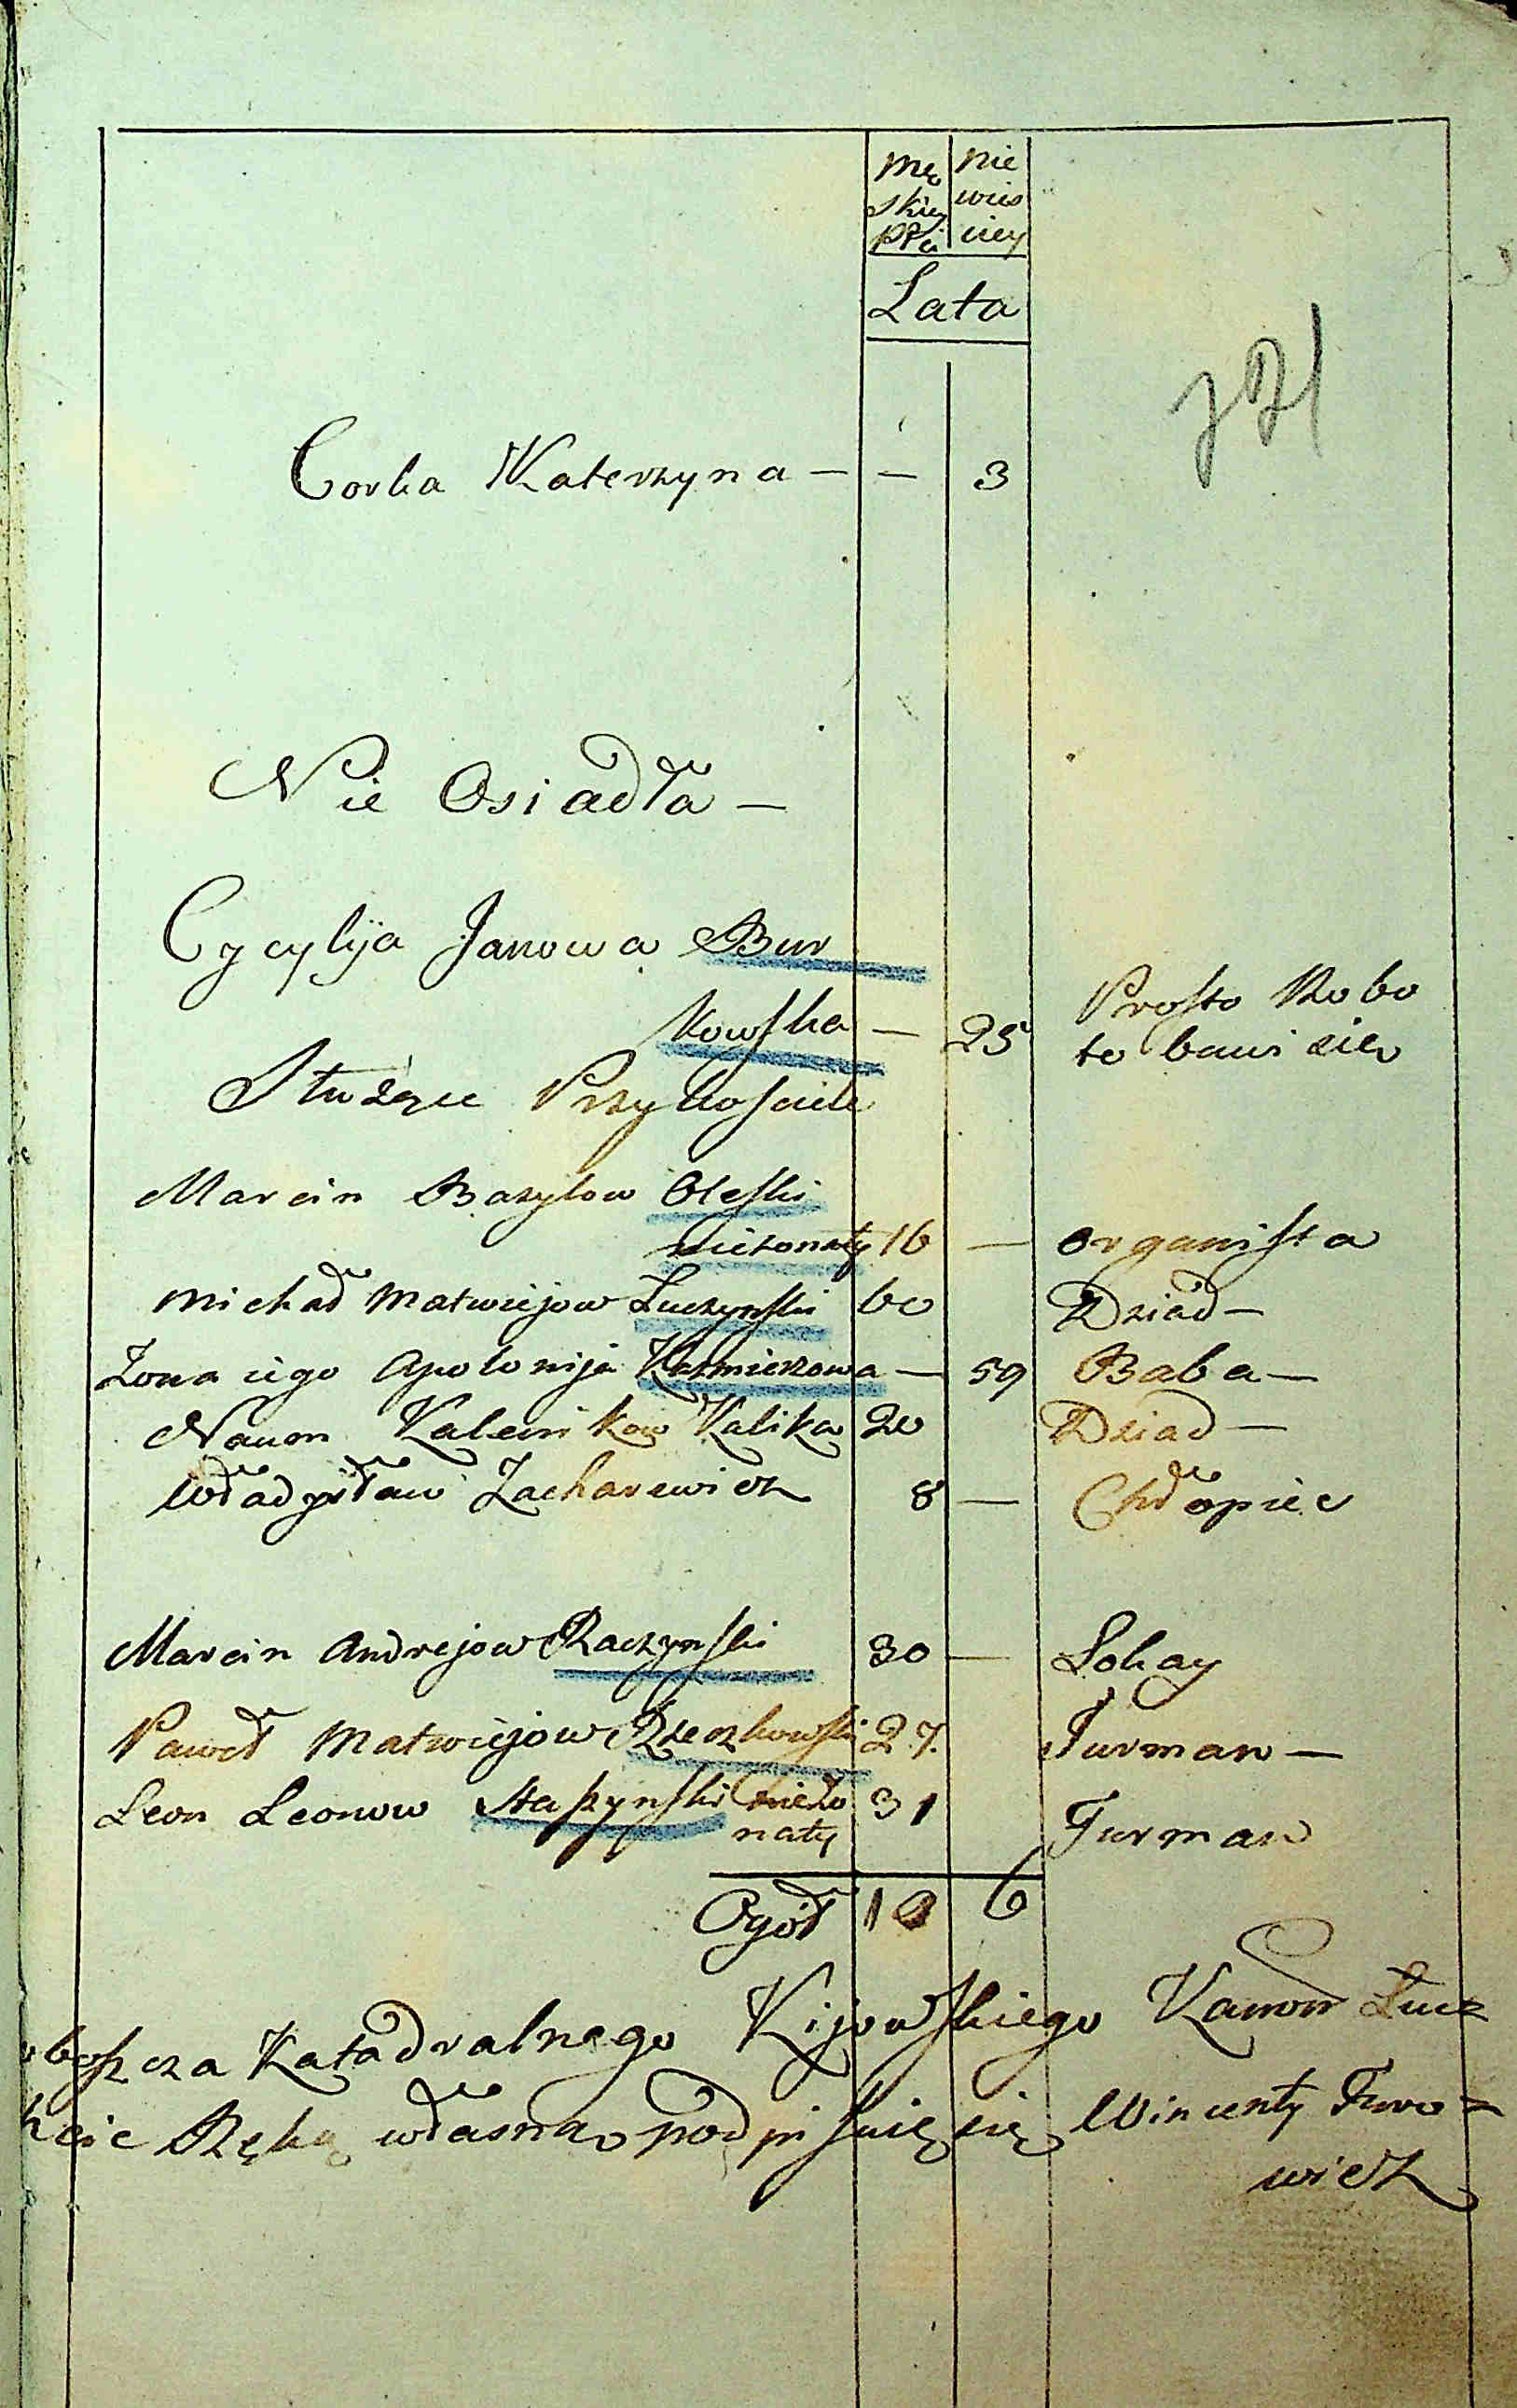 Mę nie
skiey wies
płci ciey
Lata
771
Corka Katerzyna — — 3
Nie Osiadła —
Cycylija Janowa Bur
kowska — 25 Prosto Robo
te bawi sieo
Służące Przykościele
Marcin Bazylow Oleski
nieżonaty 16 — organista
Michał Matwiejow Luczynski 60 Dziad —
Żona iego Apolonija Kazmierzowa — 59 Baba —
Naum Kalenikow Kalika 20 Dziad —
Władysław Zacharewicz 8 — Chłopiec
Marcin Andrejow Raczynski 30 — Lokay
Paweł Matwiejow Rzeczkowski 27. Furman —
Leon Leonow Staszynski nieżo 31
naty Furman
Ogół 10 6
Katadralnego Kijowskiego Kanon Łuc
Ręką własną podpisuię się Wincenty
wicz